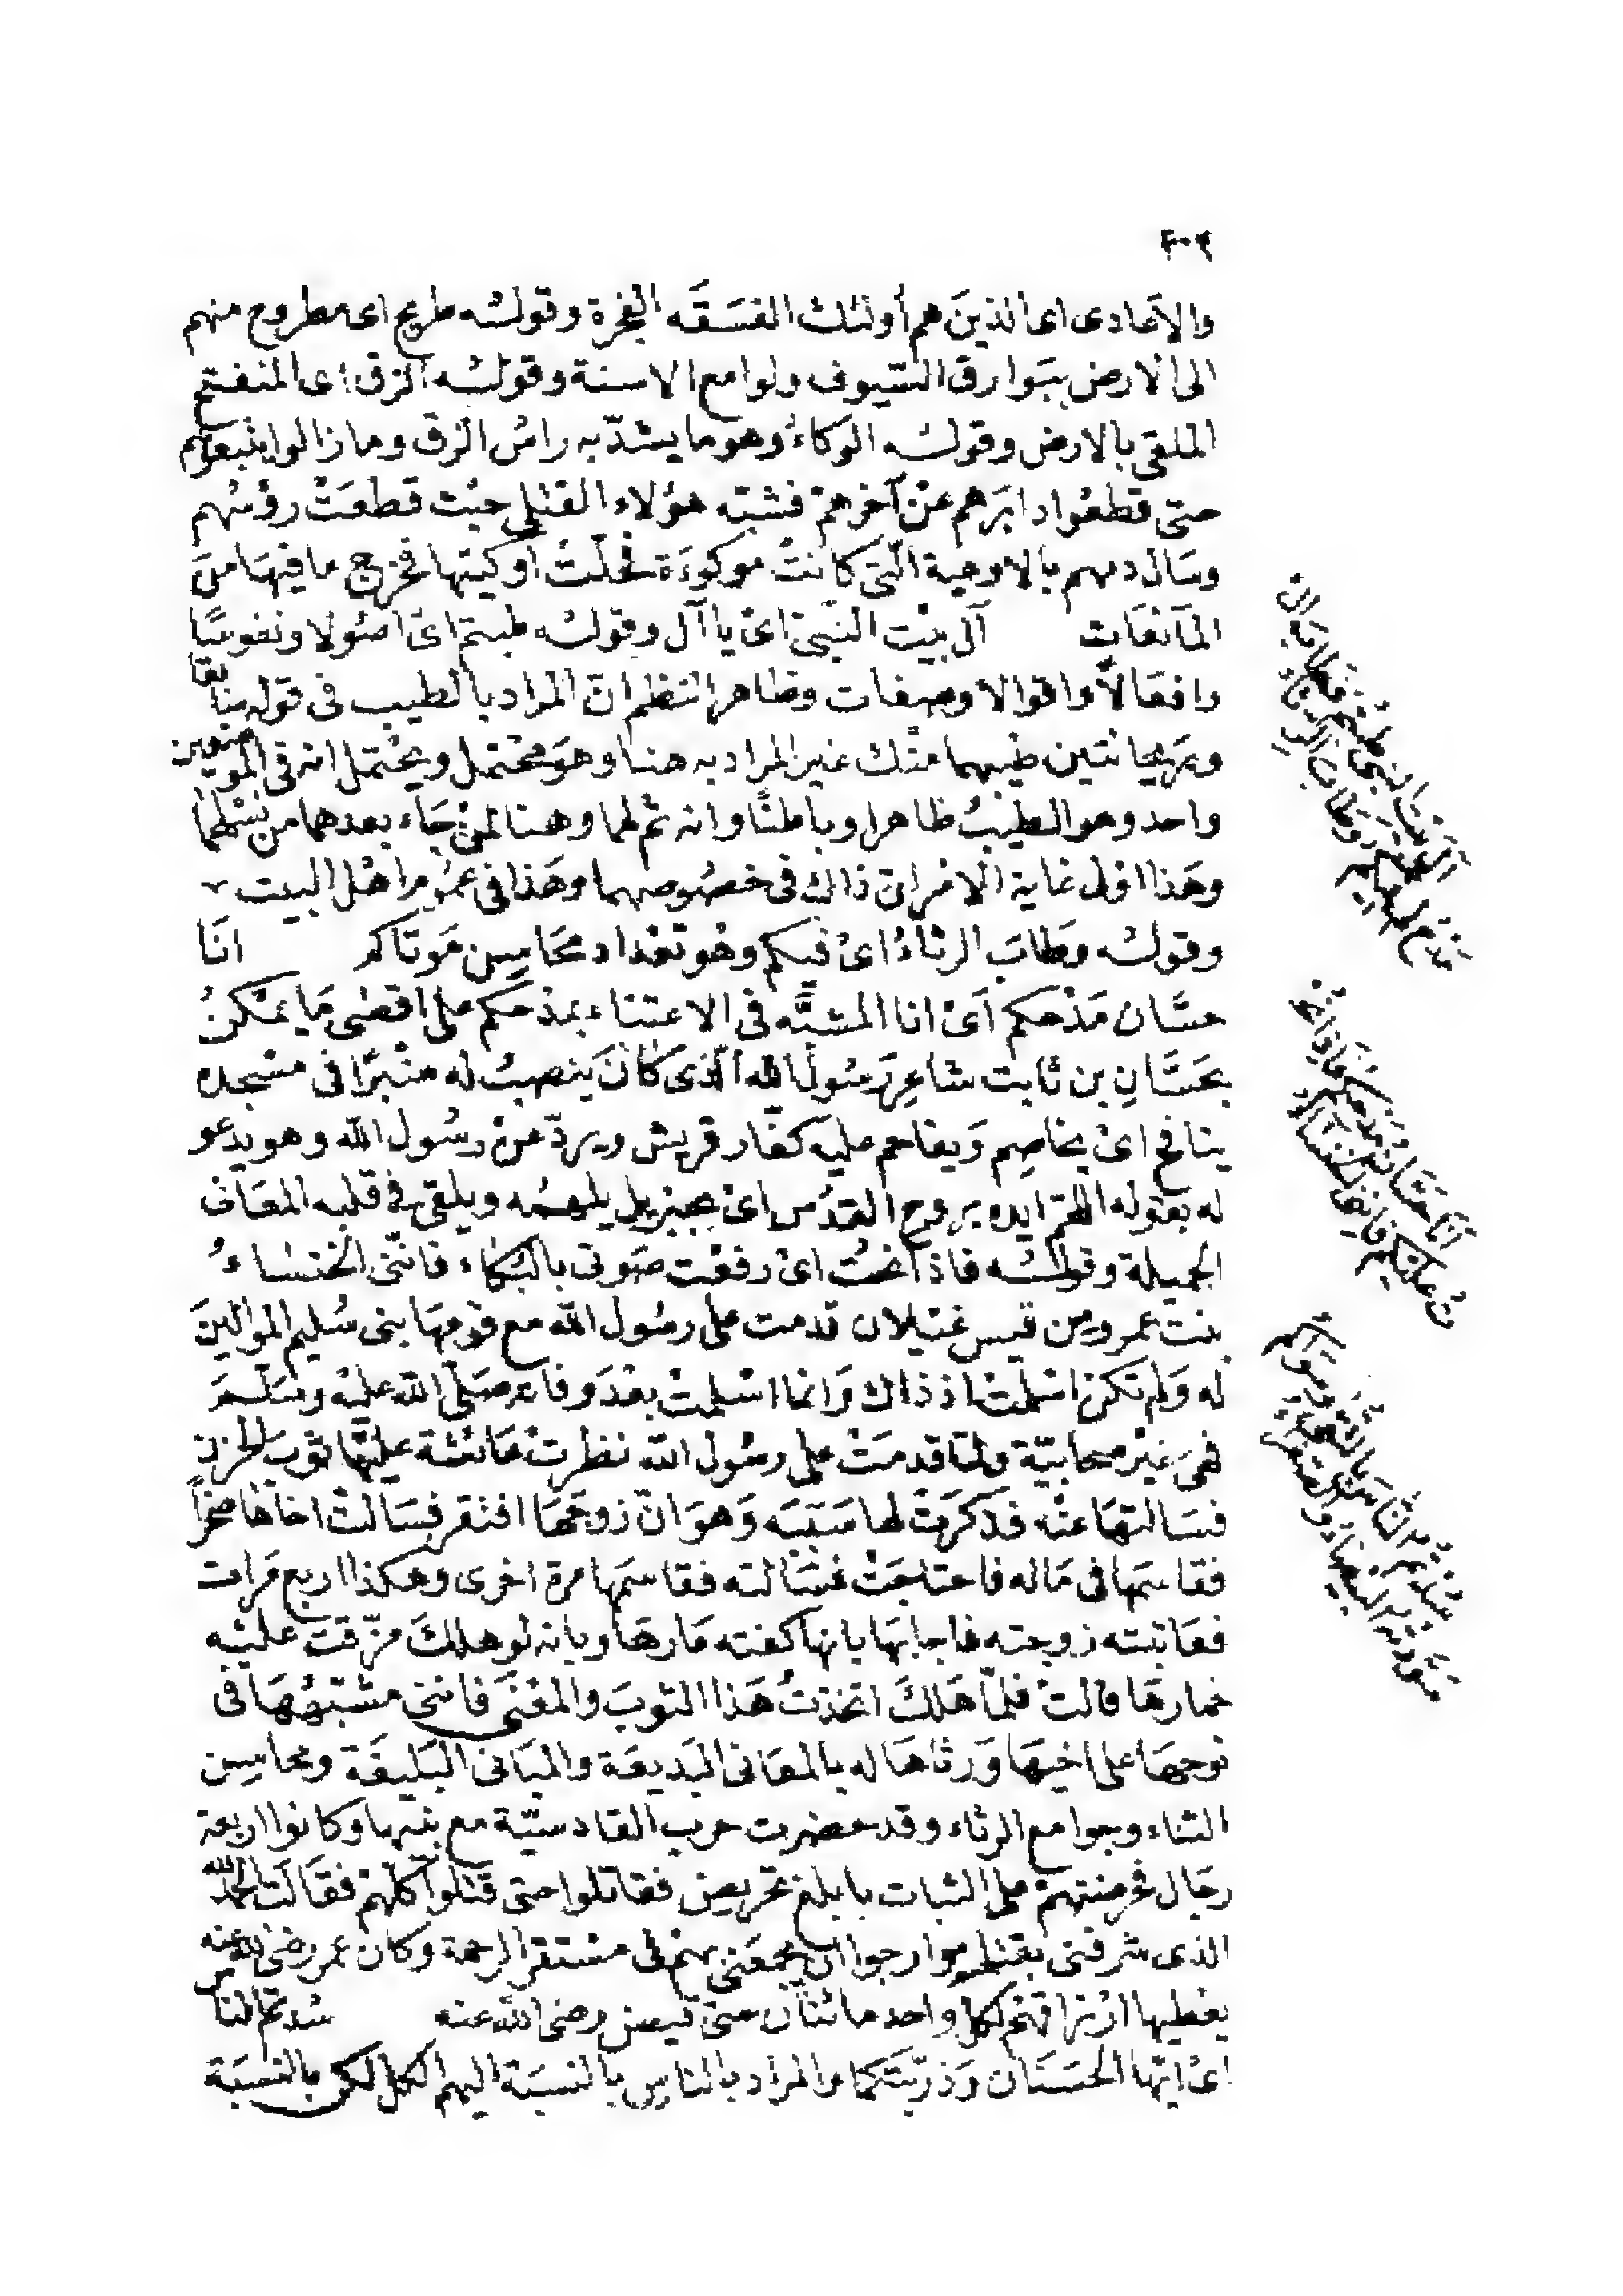 ٣٠٢
والاعادى اى الذينَ هم أولئك الفسَقَه الفجرة وقولـُه طريح اى مطروح منهم
الى الارض ببَوارق السّيوف ولوامع الاسنة وقولـُه الزق اى المنفتح
الملقى بالارض وقولـُه الوكاءُ وهو ما يشدّ به راسُ الزق وما زالوا يتبعونهم
حتى قطعُوا دابرَهم عنْ آخرهمْ فشبّه هؤلاء القتلى حيْث قطعَتْ رؤسُهم
وسَال دمهم بالاوعية الّتى كانتْ موكوءَة فحلّتْ اوكيتها فخرج ما فيهَا منَ
المآئعَات آل بيْت النّبى اىْ يا آل وقولـُه طبتم اىْ اصُولا ونفوسًا
وافعَالاً واقوالا وصفات وظاهر النظم انّ المراد بالطيب فى قوله سَابقا
وريحانتين طيبهما منْك غير المراد به هنا وهوَ محتمل ويحْتمل انه فى الموضعين
واحد وهو الطيبُ ظاهرا وباطنًا وانه ثم لهما وهنا لمنْ جَاء بعدهما من نسْلهمَا
وهَذا اولى غاية الامر انّ ذالك فى خصُوصهما وهَذا فى عمُوم اهْل البيت
وقولـُه وطَابَ الرثاءُ اىْ فيكم وهُو تعْداد محَاسِن مَوتاكم انَا
حسَّان مَدْحكم اَىْ انا المشبَّه فى الاعتناء بمدْحكم على اقصٰى مَا يمْكنُ
بحَسَّانِ بن ثابت شاعِر رَسُول الله الّذى كَانَ ينصبُ له منْبرًا فى مسْجده
ينافح اىْ يخاصِم وَيفاحم عليه كفّار قريش ويردّ عنْ رسُول الله وهو يدعو
له بقوله اللّهم ايده بروح القدُس اىْ جبْريل يلهمُه ويلقى فى قلبه المعَانى
الجميلة وقولـُه فاذا نحْتُ اىْ رفعْت صَوتى بالبُكاء فانّنى الخنسَاءُ
بنت عمرو من قيس غيْلان قدمت على رسُول الله مع قوْمهَا بنى سُليم الموَالينَ
له وَلم تكنْ اسْلمتْ اذ ذاك وَانما اسْلمتْ بعْدَ وفاته صَلّى الله عليْه وسَلّمَ
فهىَ غيْر صحابيّة ولمّا قدمَتْ على رسُول الله نظرتْ عَائشة عليْها ثوبَ الحزن
فسَالتهَا عنْه فذكرَتْ لها سَببَه وَهوَ انّ زوجَهَا افتقر فسَالتْ اخَاهَا صخرًا
فقاسَمها فى مَاله فاحتاجَتْ فسَالته فقاسمَها مرة اخرى وهكذا اربع مَرات
فعَاتبته زوجته فاجابهَا بانها كفته عَارهَا وبانه لو هلكَ مزّقتْ عليْه
خمارهَا قالتْ فلمّا هَلكَ اتخذتُ هَذا الثوبَ والمعْنى فاننى مشْبهُهَا فى
نوحهَا على اخيهَا وَرثاهَا له بالمعَانى البَديعَة والمبَانى البَليغَة ومحَاسِن
الثناء وجوامع الرثاء وقد حضرت حرب القادسيّة مع بنيها وكانوا اربعة
رجَال فحرضتهمْ على الثبات بابلغ تحريض فقاتلوا حتى قتلوا كلهمْ فقَالت الحمد لله
الذى شرفنى بقتلهم وارجوا ان يجمعَنى بهم فى مستقر الرحمة وكان عمر رضى الله عنه
يعْطيها ارْزاقهمْ لكل واحد مائتان حتى قبض رضى الله عنه سُدتم الناس
اىْ ايّها الحسَنَان وَذريّتكما والمراد بالناس بالنسبَة اليهم الكل لكن بالنسبَة
آل بيْت النبى طبْتم فطابَ ال
مدْح فيكم وطابَ الرثاءُ
أنا حسّانُ مدْحكم فاذا نحْ
تُ عليْكم فاننى الخنسَاءُ
سُدْتم الناسَ بالتّقى وسواكم
سوّدتْه البيْضاء والصّفراء